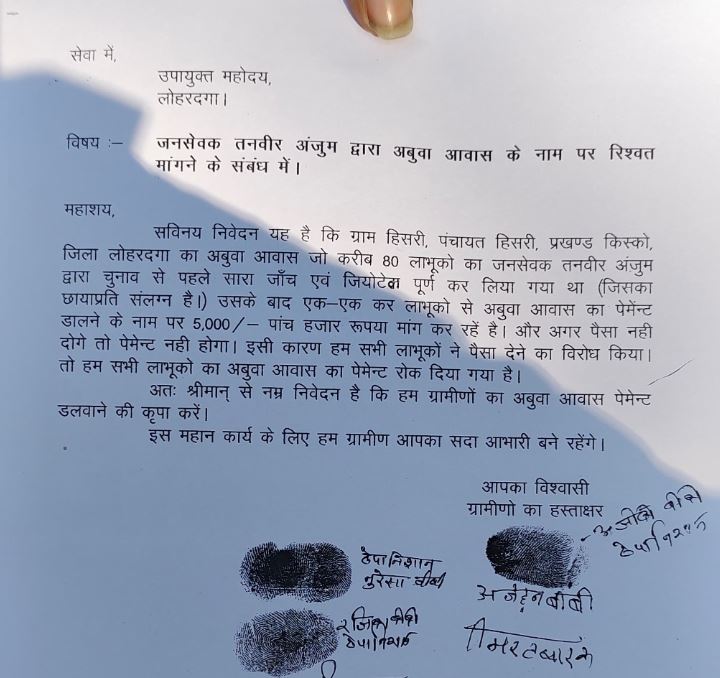 सेवा में,
उपायुक्त महोदय,
लोहरदगा।
विषय :– जनसेवक तनवीर अंजुम द्वारा अबुवा आवास के नाम पर रिश्वत
मांगने के संबंध में।
महाशय,
सविनय निवेदन यह है कि ग्राम हिसरी, पंचायत हिसरी, प्रखण्ड किस्को,
जिला लोहरदगा का अबुवा आवास जो करीब 80 लाभूको का जनसेवक तनवीर अंजुम
द्वारा चुनाव से पहले सारा जाँच एवं जियोटेक पूर्ण कर लिया गया था (जिसका
छायाप्रति संलग्न है।) उसके बाद एक–एक कर लाभूको से अबुवा आवास का पेमेंन्ट
डालने के नाम पर 5,000/– पांच हजार रूपया मांग कर रहें है। और अगर पैसा नही
दोगे तो पेमेन्ट नही होगा। इसी कारण हम सभी लाभूकों ने पैसा देने का विरोध किया।
तो हम सभी लाभूको का अबुवा आवास का पेमेन्ट रोक दिया गया है।
अतः श्रीमान् से नम्र निवेदन है कि हम ग्रामीणों का अबुवा आवास पेमेन्ट
डलवाने की कृपा करें।
इस महान कार्य के लिए हम ग्रामीण आपका सदा आभारी बने रहेंगे।
आपका विश्वासी
ग्रामीणो का हस्ताक्षर
ठेपा निशान
बीबी